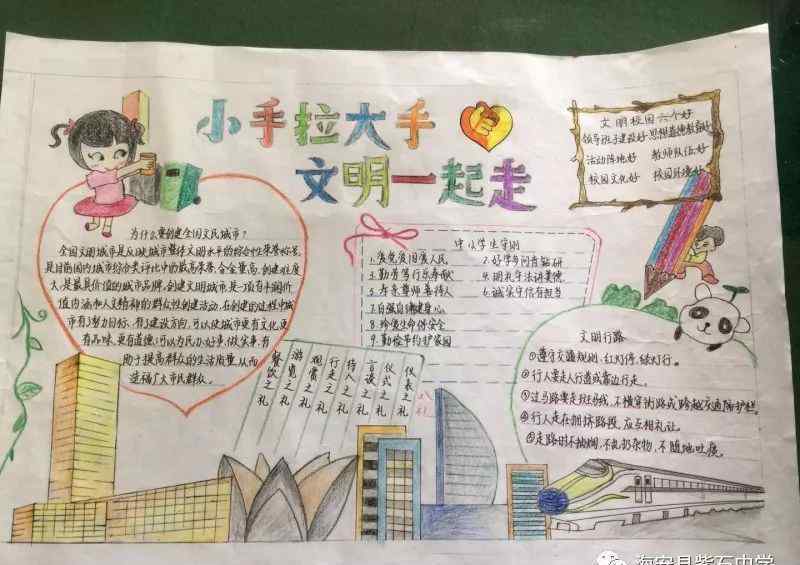 小手拉大手
文明一起走
文明校园六个好
领导班子建设好 思想道德教育好
活动阵地好 教师队伍好
校园文化好 校园环境好
为什么要创建全国文民城市?
全国文明城市是反映城市整体文明水平的综合性荣誉称号,
是目前国内城市综合类评比中的最高荣誉,含金量高,创建难度
大,是最具价值的城市品牌,创建文明城市是一项有丰润价
值内涵和人文精神的群众性创建活动,在创建的过程中城
市有了努力目标,有了建设方向,可以使城市更有文化,更
有品味,更有道德;可以为民办好事,做实事,有
助于提高群众的生活质量,从而
造福广大市民群众。
中小学生守则
1.爱党爱国爱人民 2.好学多问肯钻研
3.勤劳笃行乐奉献 4.明礼守法讲美德
5.孝亲尊师善待人 6.诚实守信有担当
7.自强自律健身心
8.珍爱生命保安全
9.勤俭节约护家园
八礼
仪表之礼
仪式之礼
言谈之礼
待人之礼
行走之礼
观赏之礼
游览之礼
餐饮之礼
文明行路
①遵守交通规则,红灯停,绿灯行。
②行人要走人行道或靠边行走。
③过马路要走斑马线,不横穿街路或跨越交通隔护栏。
④行人走在拥挤路段,应互相礼让。
⑤走路时不抽烟,不乱扔杂物,不随地吐痰。
海安县紫石中学